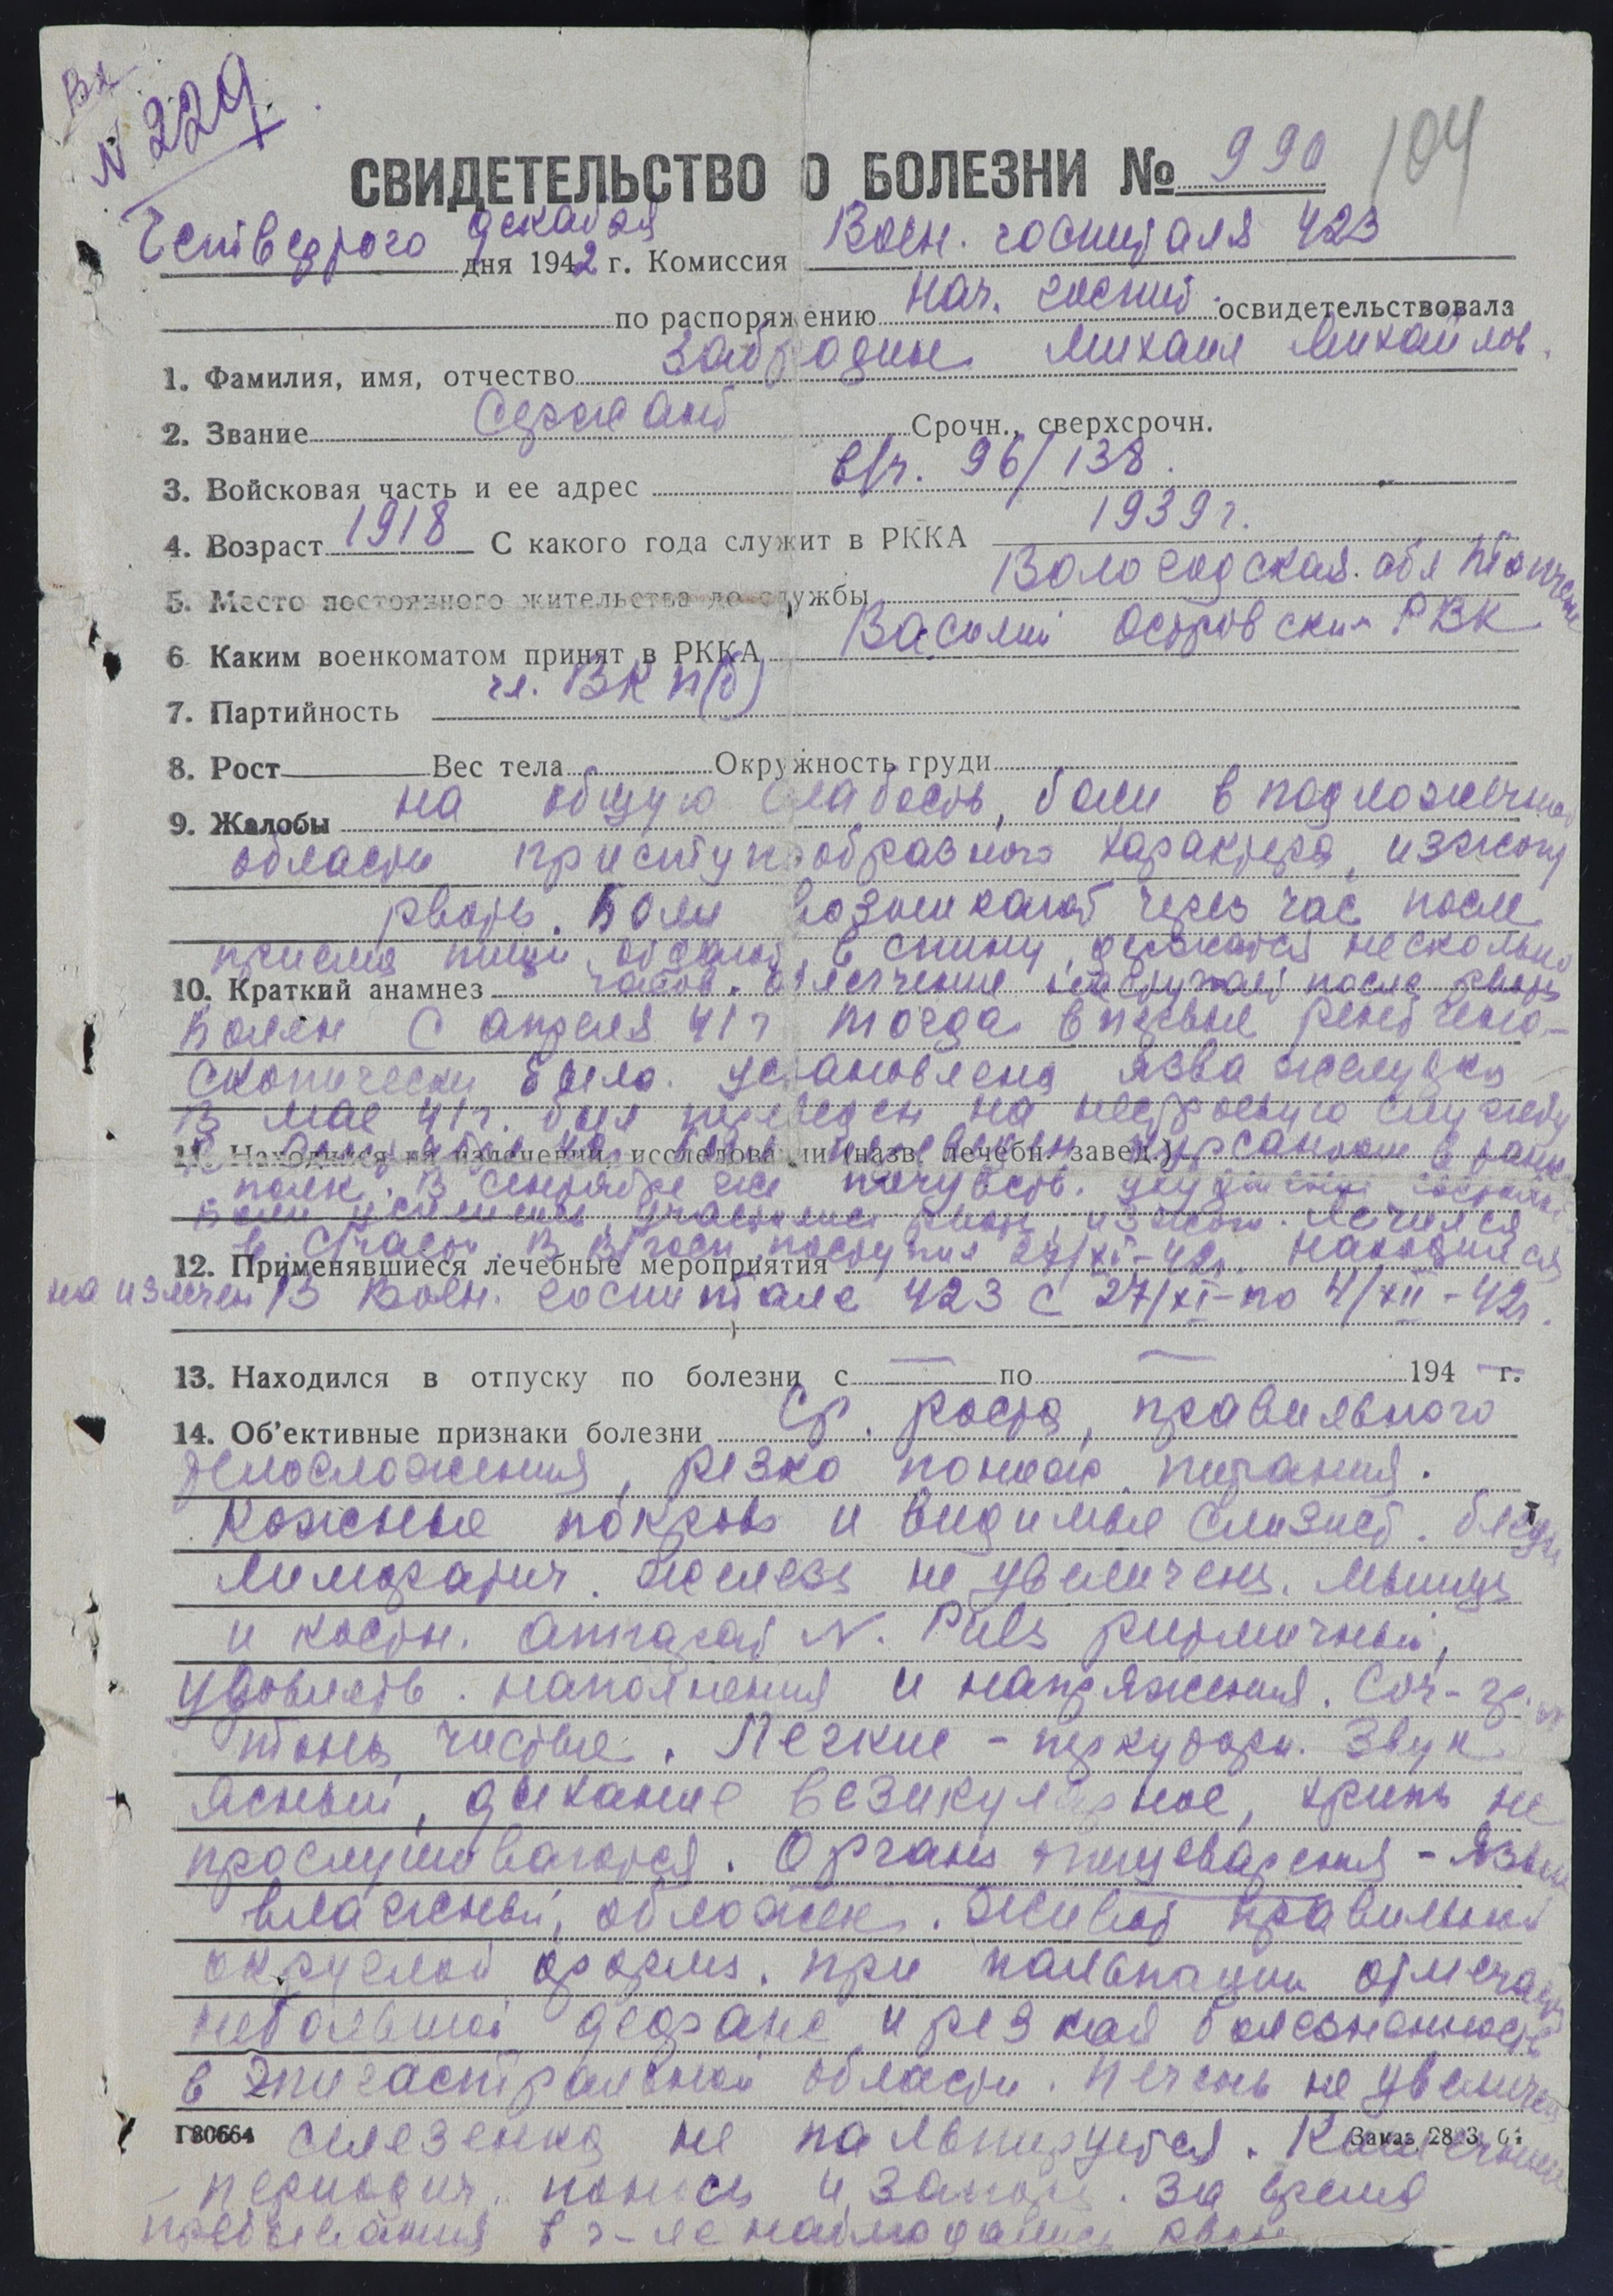 Вх
№ 229
104
СВИДЕТЕЛЬСТВО О БОЛЕЗНИ № 990
Четвертого декабря дня 1942 г. Комиссия Воен. госпиталя 423
по распоряжению Нач. госпит. освидетельствовала
1. Фамилия, имя, отчество Забродин Михаил Михайлов.
2. Звание Сержант Срочн., сверхсрочн.
3. Войсковая часть и ее адрес в/ч. 96/138.
4. Возраст 1918 С какого года служит в РККА 1939 г.
5. Место постоянного жительства до службы Вологодская. обл
6 Каким военкоматом принят в РККА Василий Островским РВК
7. Партийность чл. ВКП(б)
8. Рост Вес тела Окружность груди
9. Жалобы на общую слабость, боли в подложечной
области приступообразного характера, изжогу
рвоту. Боли возникают через час после
приема пищи, отдают в спину, держатся несколько
10. Краткий анамнез часов. Облегчение наступает после рвоты
Болен с апреля 41 г тогда впервые рентгено-
скопически была установлена язва желудка
В мае 41 г. был переведен на нестроевую службу
11. Находился на излечении, исследовании (назв. лечебн. завед.) курсантом в
полк. В сентябре же почувств. ухудшение
Боли усилились, участилась рвота, изжога. Лечился
в с/части. В В/госп. поступил 27/XI-42г. Находился
12. Применявшиеся лечебные мероприятия
на излечен. В Воен. госпитале 423 с 27/XI- по 4/XII-42г.
13. Находился в отпуску по болезни с — по — 194 — г.
14. Об'ективные признаки болезни Ср. роста, правильного
телосложения, резко пониж. питания.
Кожные покровы и видимые слизист. бледн
Лимфатич. железы не увеличены. Мышцы
и костн. аппарат N. Puls ритмичный,
удовлетв. наполнения и напряжения. Сердце-гр. N
тоны чистые. Легкие - перкуторн. звук
ясный, дыхание везикулярное, хрипы не
прослушиваются. Органы пищеварения - Язык
влажный, обложен. Живот правильной
округлой формы. При пальпации отмечает
небольшой дефанс и резкая болезненность
в эпигастральной области. Печень не увеличена
Г80664 Заказ 28 3 64
селезенка не пальпируется. Кишечник
- периодич. поносы и запоры. За время
пребывания в г-ле наблюдались рвоты